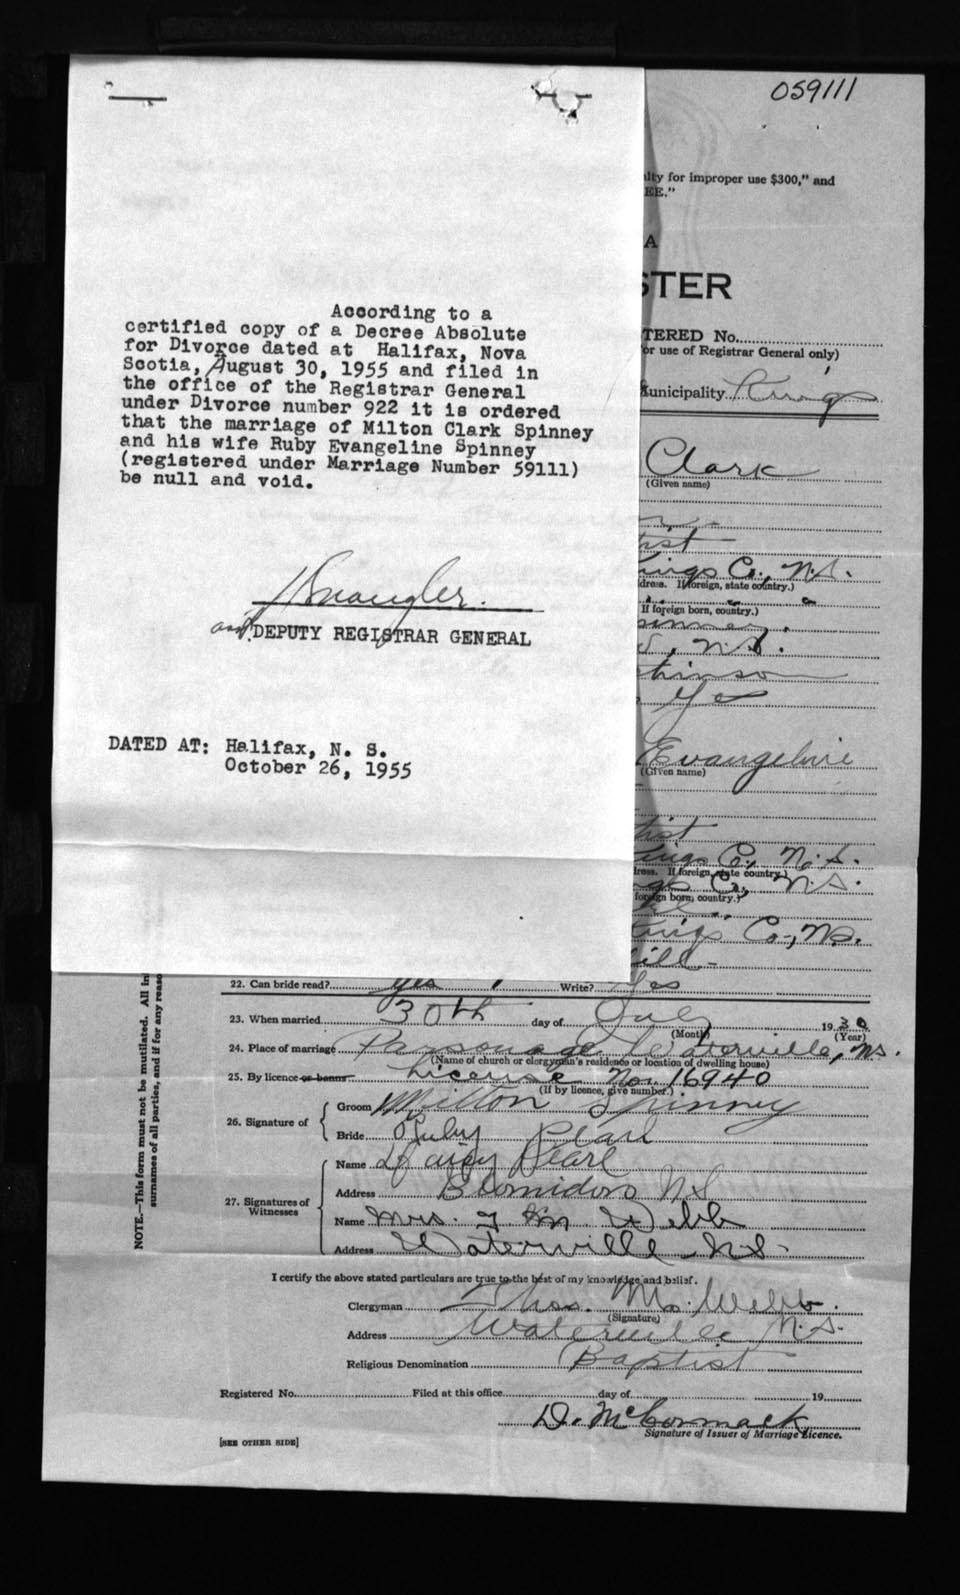 059111
lty for improper use $300," and
EE."
A
STER
TERED No.
or use of Registrar General only)
Municipality Kings
Clark
(Given name)
tist
ings Co., N.S.
dress. If foreign, state country.)
If foreign born, country.)
pinney.
N.S.
Yes
Evangeline
(Given name)
tist
ings Co., N.S.
dress. If foreign, state country.)
gs Co., N.S.
foreign born, country.)
Kings Co., N.S.
ill
According to a
certified copy of a Decree Absolute
for Divorce dated at Halifax, Nova
Scotia, August 30, 1955 and filed in
the office of the Registrar General
under Divorce number 922 it is ordered
that the marriage of Milton Clark Spinney
and his wife Ruby Evangeline Spinney
(registered under Marriage Number 59111)
be null and void.
DEPUTY REGISTRAR GENERAL
DATED AT: Halifax, N. S.
October 26, 1955
NOTE.—This form must not be mutilated. All in
surnames of all parties, and if for any reaso
22. Can bride read? yes Write? Yes
23. When married 30th day of July 1930.
(Month) (Year)
24. Place of marriage Parsonage Waterville, N.S.
(Name of church or clergyman's residence or location of dwelling house)
25. By licence or banns License No. 16940
(If by licence, give number.)
26. Signature of
Groom Milton Spinney
Bride Ruby Pearl
27. Signatures of Witnesses
Name Pearl
Address Blomidon N S
Name Mrs. T M Webb
Address Waterville N.S.
I certify the above stated particulars are true to the best of my knowledge and belief.
Clergyman Thos. M. Webb.
(Signature)
Address Waterville N.S.
Religious Denomination Baptist
Registered No. Filed at this office day of 19
D. McCormack
Signature of Issuer of Marriage Licence.
[SEE OTHER SIDE]